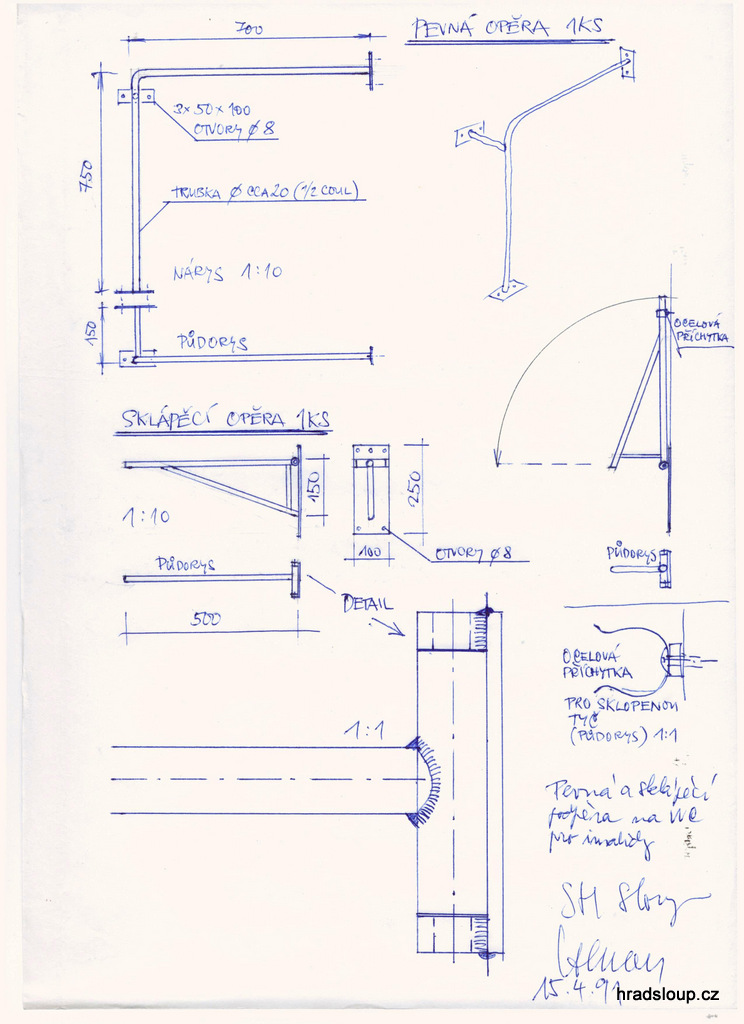 700
PEVNÁ OPĚRA 1KS
3×50×100
OTVORY Ø 8
750
TRUBKA Ø CCA 20 (1/2 COUL)
NÁRYS 1:10
150
PŮDORYS
OCELOVÁ
PŘÍCHYTKA
SKLÁPĚCÍ OPĚRA 1KS
150
250
1:10
100
OTVORY Ø 8
PŮDORYS
PŮDORYS
500
DETAIL
OCELOVÁ
PŘÍCHYTKA
PRO SKLOPENOU
TYČ
(PŮDORYS) 1:1
1:1
Pevná a sklápěcí
podpěra na WC
pro invalidy
15.4.91
hradsloup.cz